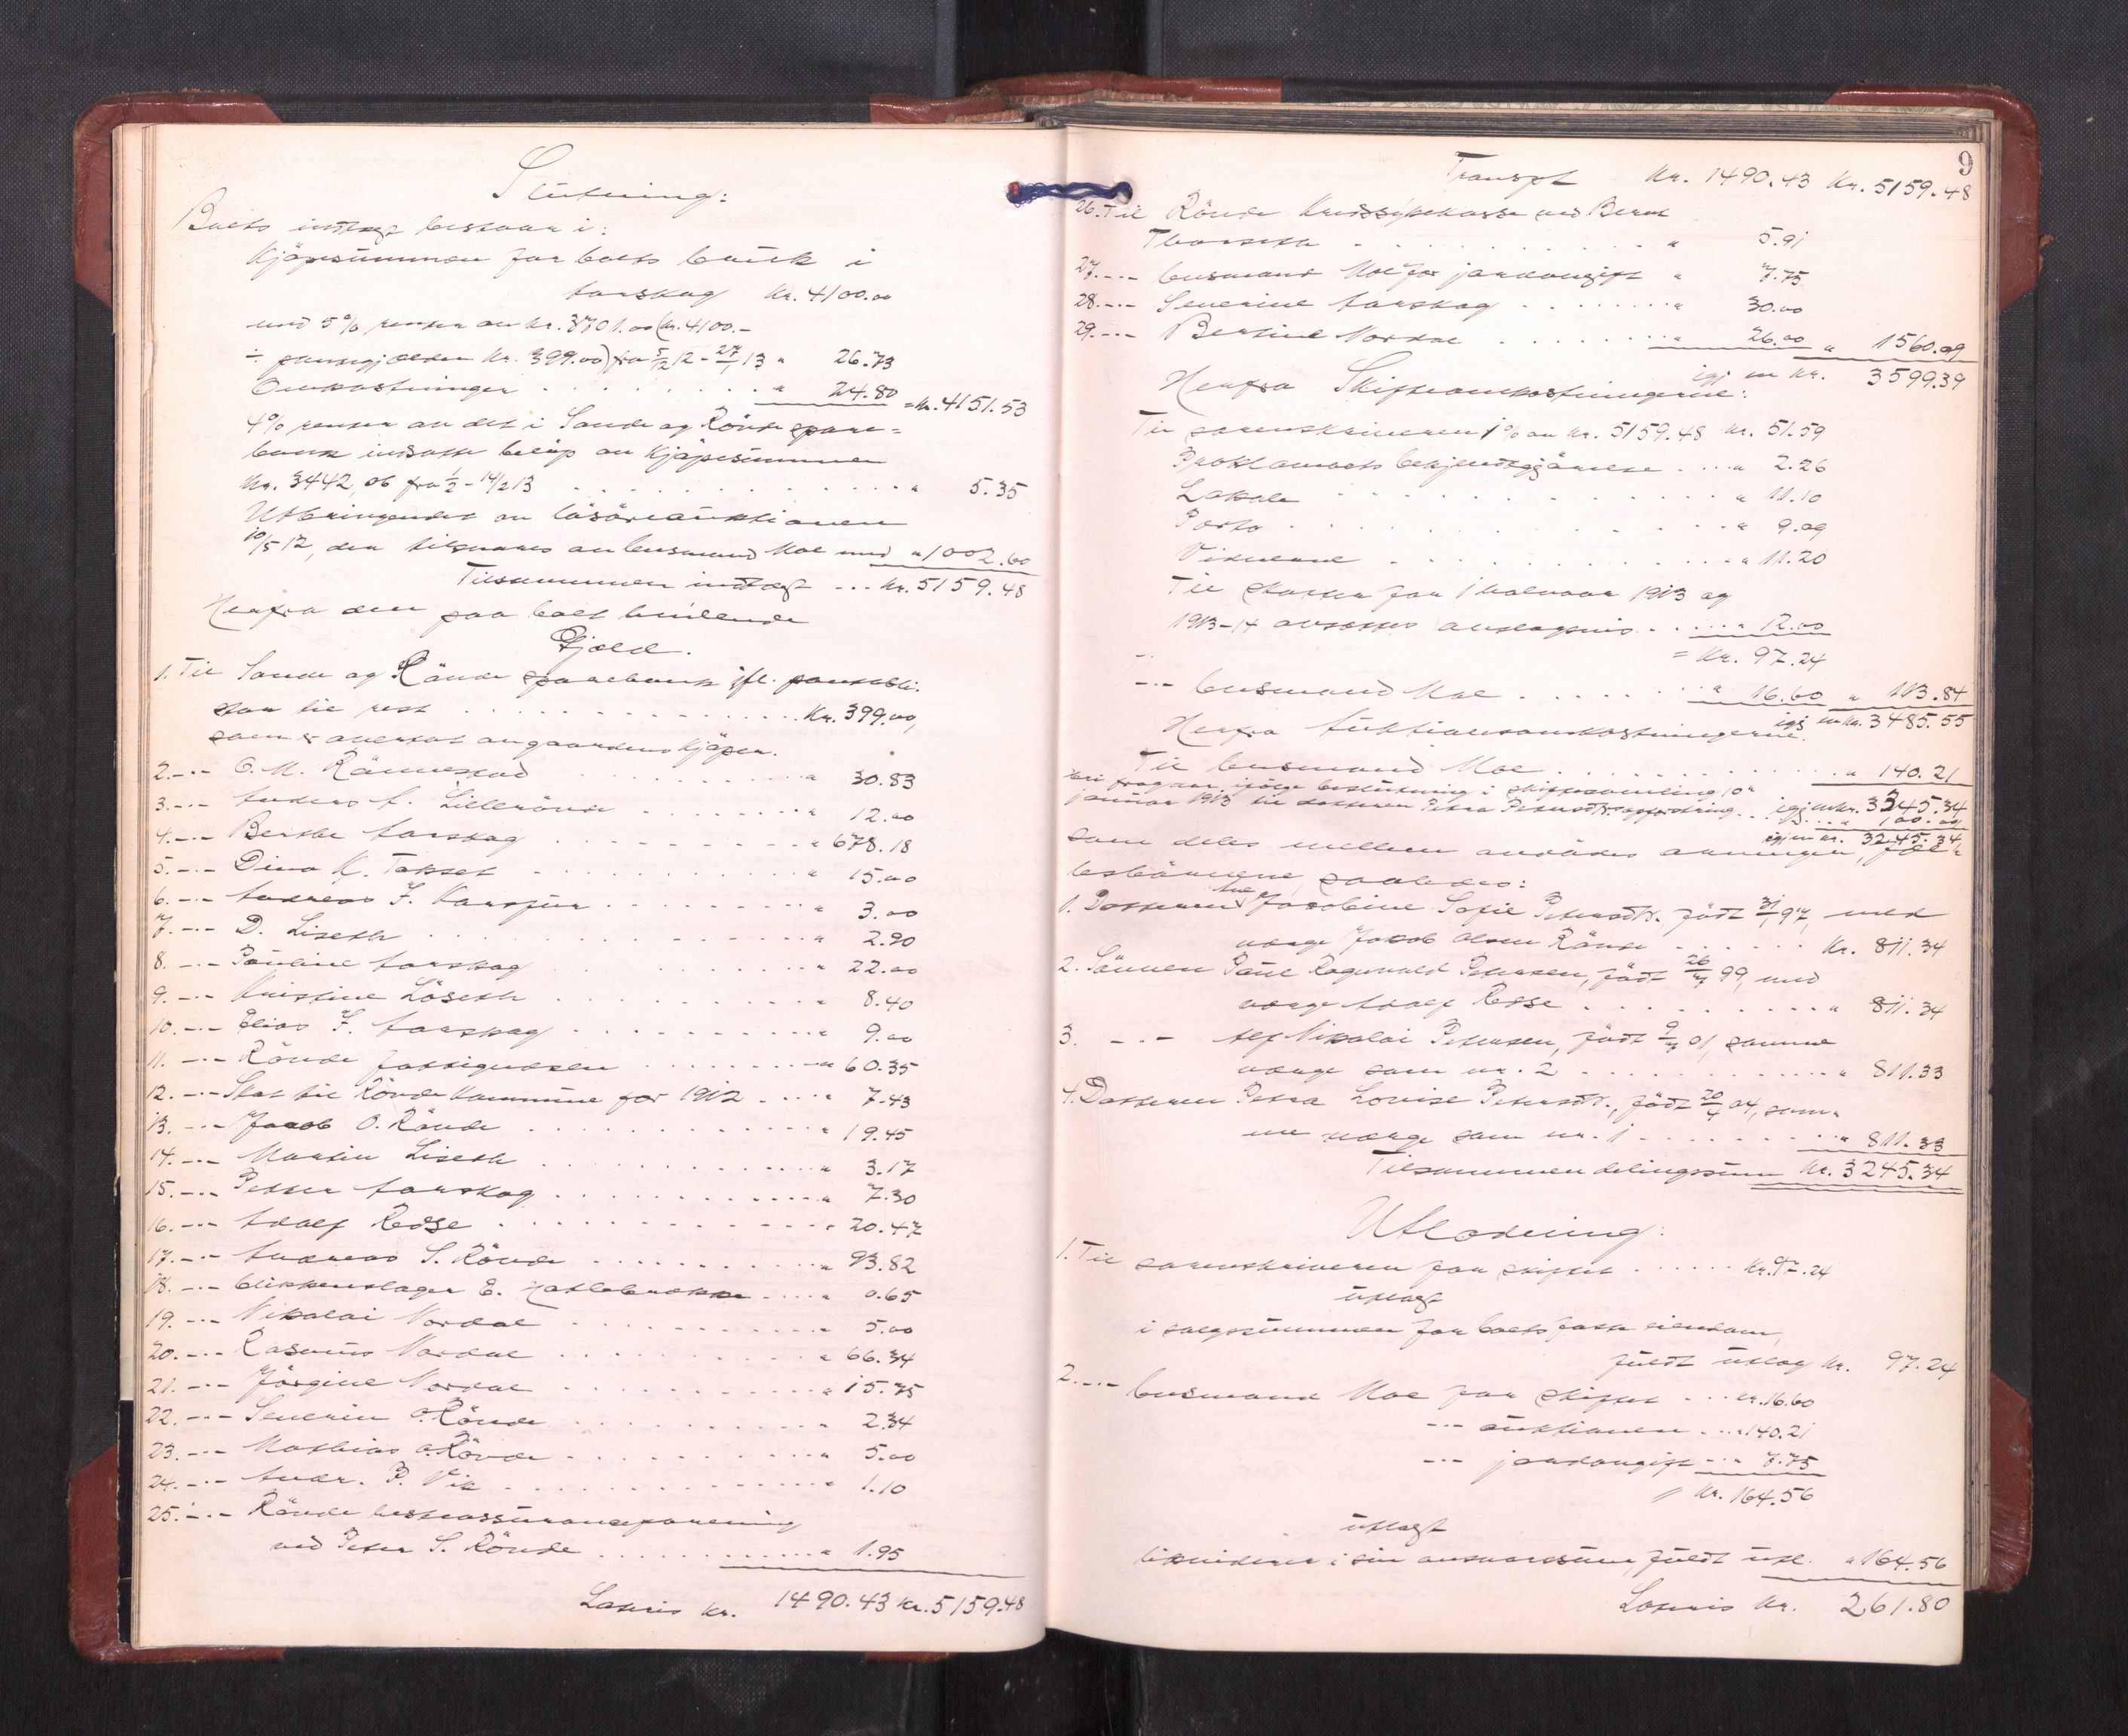 Slutning:
Boets indtægt bestaar i:
Kjøpesummen for boets bruk i
Aarskog Kr. 4100.00
med 5% renter av kr. 3701.00 (kr. 4100.-
÷ pantegjælden kr. 399.00) fra 5/12 12 - 27/1 13 " 26.73
Omkostninger . . . . " 24.80 = kr. 4151.53
4% renter av det i Sande og Rövde spare=
bank indsatte beløp av kjøpesummen
Kr. 3442,06 fra 1/2 - 14/2 13 . . . . " 5.35
Utbringendet av løsøreauktionen
10/5 12, der tilsvares av lensmand Moe med " 1002.60
Tilsammen indtægt ... kr. 5159.48
Herfra den paa boet hvilende
Gjæld.
1. Til Sande og Rövde sparebank ifl. pantobli-
som er overtat av gaardens kjøper.
2. -"- O. M. Rönnestad . . . . " 30.83
3. -"- Anders A. Lillerövde . . . . " 12.00
4. -"- Berthe Aarskog . . . . " 678.18
5. -"- Dina K. Takset . . . . " 15.00
6. -"- Andreas J. . . . . " 3.00
7. -"- D. Liseth . . . . " 2.90
8. -"- Pauline Aarskog . . . . " 22.00
9. -"- Kristine Löseth . . . . " 8.40
10. -"- Elias J. Aarskog . . . . " 9.00
11. -"- Rövde fattigvæsen . . . . " 60.35
12. -"- Skat til Rövde kommune for 1912 . . . . " 7.43
13. -"- Jacob O. Rövde . . . . " 19.45
14. -"- Martin Liseth . . . . " 3.17
15. -"- Petter Aarskog . . . . " 7.30
16. -"- Adolf Redse . . . . " 20.47
17. -"- Andreas S. Rövde . . . . " 93.82
18. -"- blikkenslager E. Hatlebrekke . . . . " 0.65
19. -"- Nikolai Nordal . . . . " 5.00
20. -"- Rasmus Nordal . . . . " 66.34
21. -"- Jørgine Nordal . . . . " 15.75
22. -"- Severin O. Rövde . . . . " 2.34
23. -"- Mathias O. Rövde . . . . " 5.00
24. -"- Andr. P. Vik . . . . " 1.10
25. -"- Rövde hesteassuranceforening
ved Peter S. Rövde . . . . " 1.95
Lateris kr. 1490.43 kr. 5159.48
9
Transpt kr. 1490.43 kr. 5159.48
26. Til Rövde kredssykekasse ved Bernt
Thorseth . . . . " 5.91
27. -"- lensmand Moe for jordavgift " 7.75
28. -"- Severine Aarskog . . . . " 30.00
29. -"- Bertine Nordal . . . . " 26.00 " 1560.09
igj en kr. 3599.39
Herfra Skifteomkostningerne:
Til sorenskriveren 1% av kr. 5159.48 kr. 51.59
Proklamaets bekjendtgjørelse . . . . " 2.26
Lokale . . . . " 11.10
Porto . . . . " 9.09
Vidnerne . . . . " 11.20
Til skatter for 1 halvaar 1913 og
1913-14 avsættes anslagsvis . . . . " 12.00
= Kr. 97.24
-"- lensmand Moe . . . . " 16.60 " 113.84
igj en kr. 3485.55
Herfra Auktionsomkostningerne.
Til lensmand Moe . . . . " 140.21
igj en kr. 3345.34
Heri fragaar ifølge beslutning i skiftesamling 10de
januar 1913 til datteren Petra Petersdtrs opfostring . . . . " 100.00
igj en kr. 3245.34
som deles mellem avdødes arvinger,
barnene, saaledes:
1. Datteren Jacobine Sofie Petersdtr. født 31/1 97, med
verge Jakob Olsen Rövde . . . . Kr. 811.34
2. Sønnen Paul Ragnvald Petersen, født 26/4 99, med
verge Adolf Redse . . . . " 811.34
3. -"- Alf Nikolai Petersen, født 9/4 01, samme
verge som nr. 2 . . . . " 811.33
4. Datteren Petra Lovise Petersdtr., født 20/4 04, sam-
me verge som nr. 1 . . . . " 811.33
Tilsammen delingssum Kr. 3245.34
Utlodning:
1. Til sorenskriveren for skiftet . . . . kr. 97.24
utlagt
i salgssummen for boets faste eiendom,
fuldt utlag kr. 97.24
2. -"- lensmand Moe for skiftet . . . kr. 16.60
-"- auktionen . . . " 140.21
-"- jordavgift . . . " 7.75
Kr. 164.56
utlagt
likviderer i sin ansvarssum, fuldt utl. " 164.56
Lateris kr. 261.80